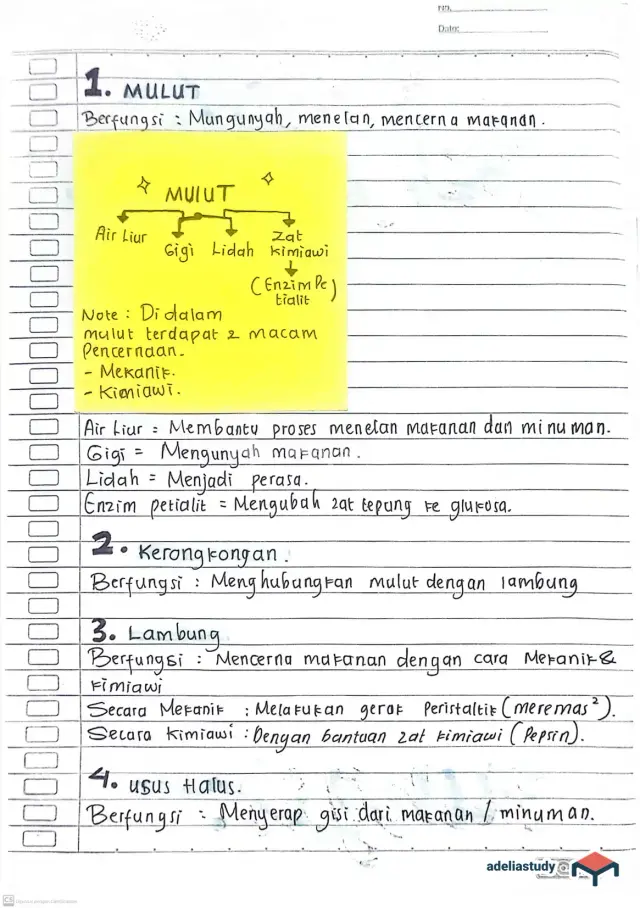 FID.
Date:
1. MULUT
Berfungsi : Mungunyah, menelan, mencerna makanan.
MULUT
Air Liur Gigi Lidah Zat Kimiawi
(Enzim Pe
tialit)
Note : Di dalam
mulut terdapat 2 macam
Pencernaan.
- Mekanik.
- Kimiawi.
Air Liur = Membantu proses menelan makanan dan minuman.
Gigi = Mengunyah makanan.
Lidah = Menjadi perasa.
Enzim petialit = Mengubah zat tepung ke glukosa.
2. Kerongkongan.
Berfungsi : Menghubungkan mulut dengan lambung
3. Lambung
Berfungsi : Mencerna makanan dengan cara Mekanik &
kimiawi
Secara Mekanik : Melakukan gerak Peristaltik (meremas²).
Secara Kimiawi : Dengan bantuan zat kimiawi (Pepsin).
4. Usus Halus.
Berfungsi : Menyerap gisi dari makanan / minuman.
adeliastudy@
CS